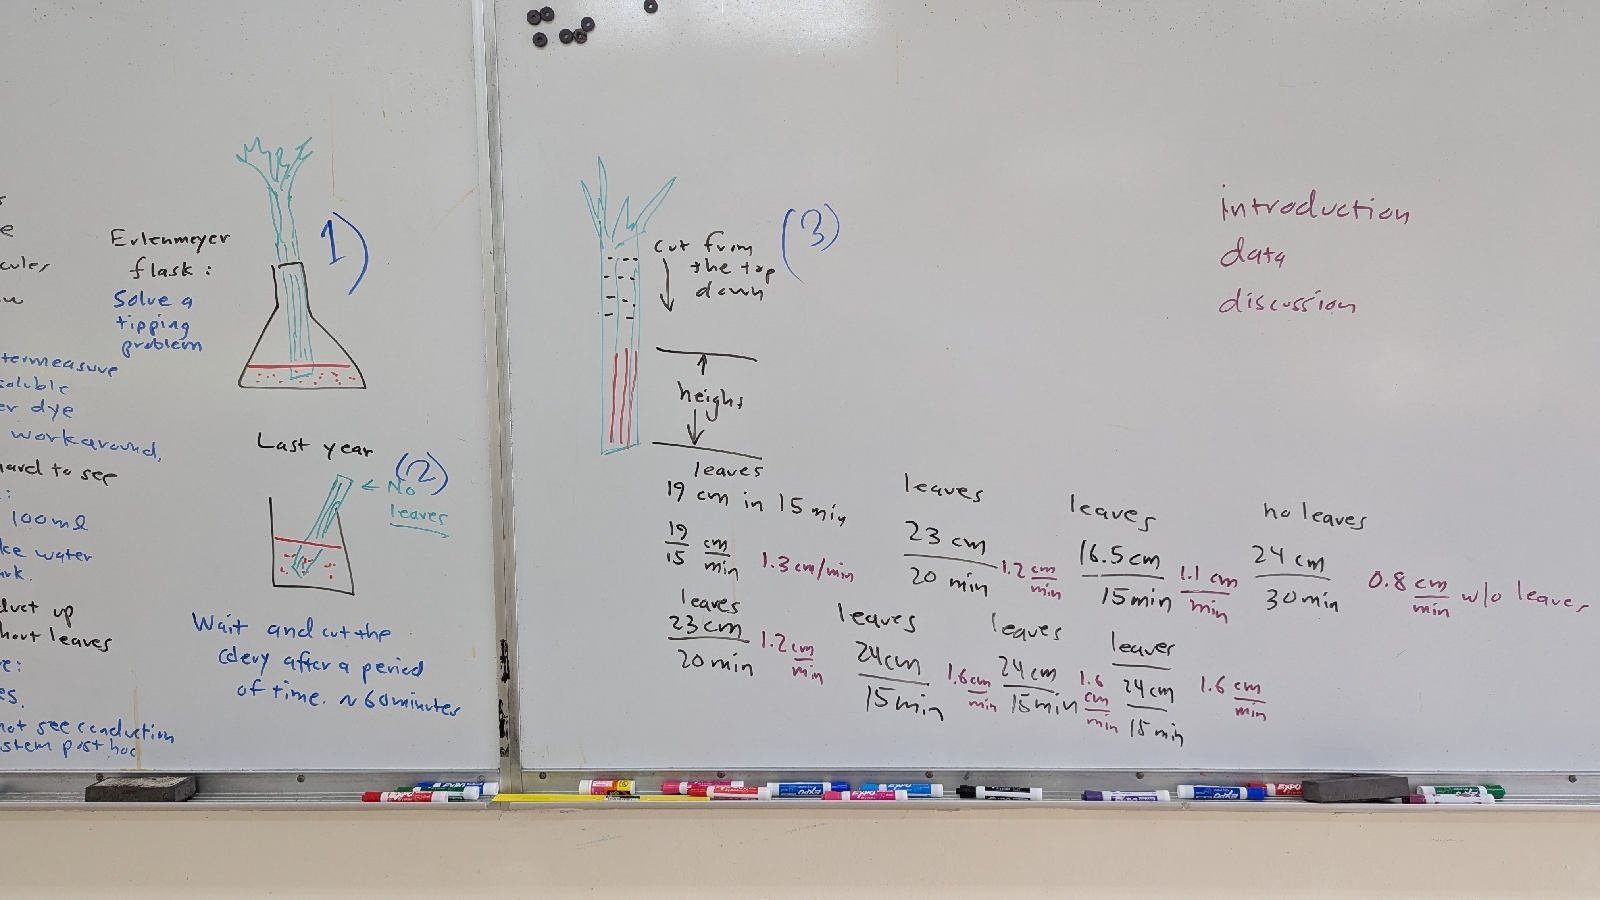 Erlenmeyer
flask:
Solve a
tipping
problem
1)
termeasure
soluble
er dye
workaround,
hard to see
100ml
ke water
duct up
hout leaves
es.
not see conduction
stem post hoc
Last year
(2)
← No
leaves
Wait and cut the
celery after a period
of time. ~60 minutes
(3)
cut from
the top
down
height
introduction
data
discussion
leaves
19 cm in 15 min
19/15 cm/min 1.3 cm/min
leaves
23 cm/20 min 1.2 cm/min
leaves
16.5 cm/15 min 1.1 cm/min
no leaves
24 cm/30 min 0.8 cm/min w/o leaves
leaves
23 cm/20 min 1.2 cm/min
leaves
24 cm/15 min 1.6 cm/min
leaves
24 cm/15 min 1.6 cm/min
leaves
24 cm/15 min 1.6 cm/min
EXPO